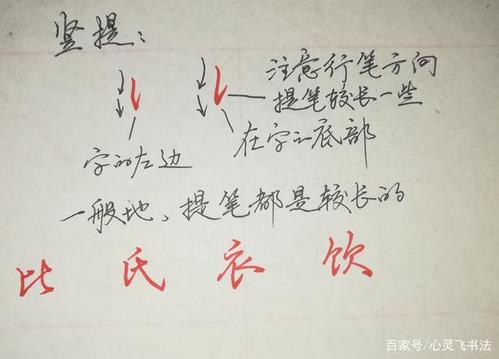 竖提：
注意行笔方向
提笔较长一些
字的左边
在字的底部
一般地、提笔都是较长的
比 氏 衣 饮
百家号/心灵飞书法